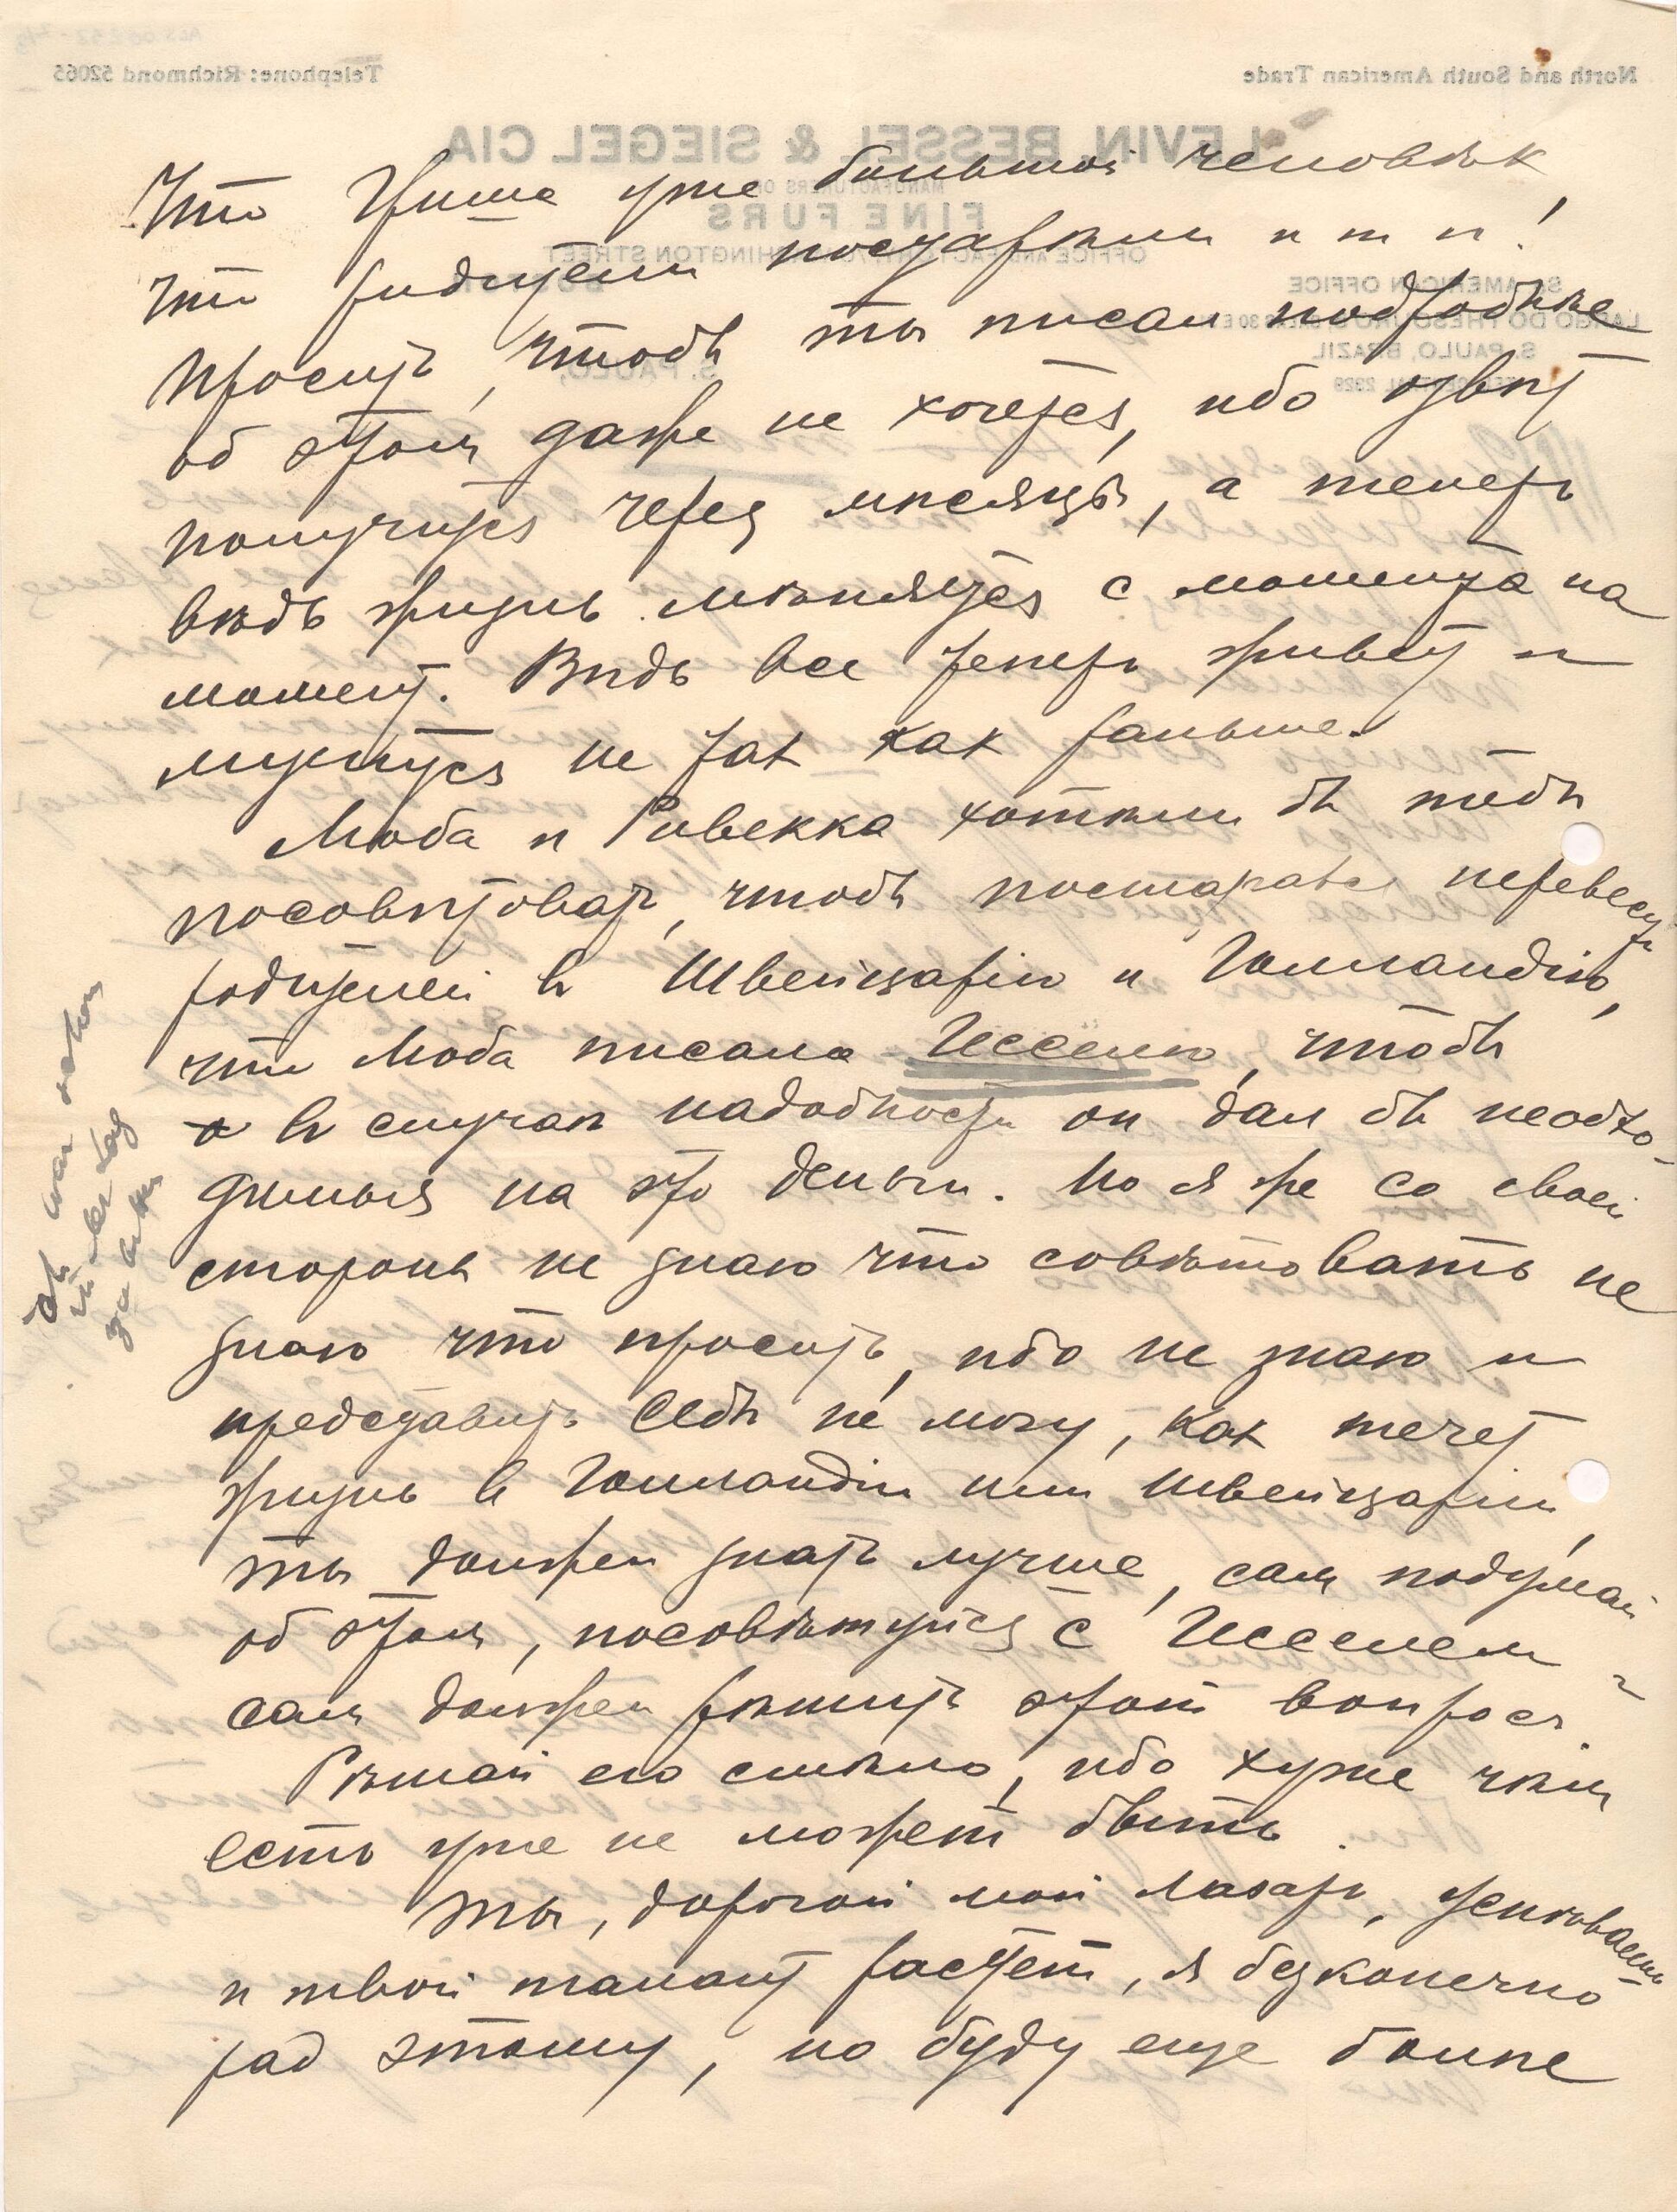 North and South American Trade
Telephone: Richmond 52065
LEVIN, BESSEL & SIEGEL CIA
FINE FURS
S. PAULO, BRAZIL
S. PAULO,
что Гриша уже большой человѣк,
что родители постарѣли и т п!
Просить, чтобъ ты писал подробнѣе
об этомъ даже не хочется, ибо отвѣт
получится через мѣсяцы, а теперь
вѣдь жизнь мѣняется с момента на
момент. Вѣдь все теперь живет и
мужится не так как раньше.
Люба и Ривекка хотѣли бъ тебѣ
посовѣтовать, чтобъ постарался перевести
родителей в Швейцарію и Голландію,
что Люба писала Исселю, чтобъ
в случаѣ надобности он дал бъ необхо-
димыя на это деньги. Но я же со своей
стороны не знаю что совѣтовать не
знаю что просить, ибо не знаю и
представить себѣ не могу, как течет
жизнь в Голландіи или Швейцаріи,
ты должен знать лучше, самъ подумай
об этомъ, посовѣтуйся с Исселем и
самъ должен рѣшить этот вопросъ
Рѣшай его смѣло, ибо хуже чѣмъ
есть уже не может быть.
Ты, дорогой мой Лазарь, успѣваешь
и твой талант растет, я безконечно
рад этому, но буду еще болѣе